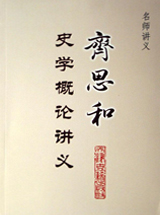 名师讲义
齊思和
史学概论讲义